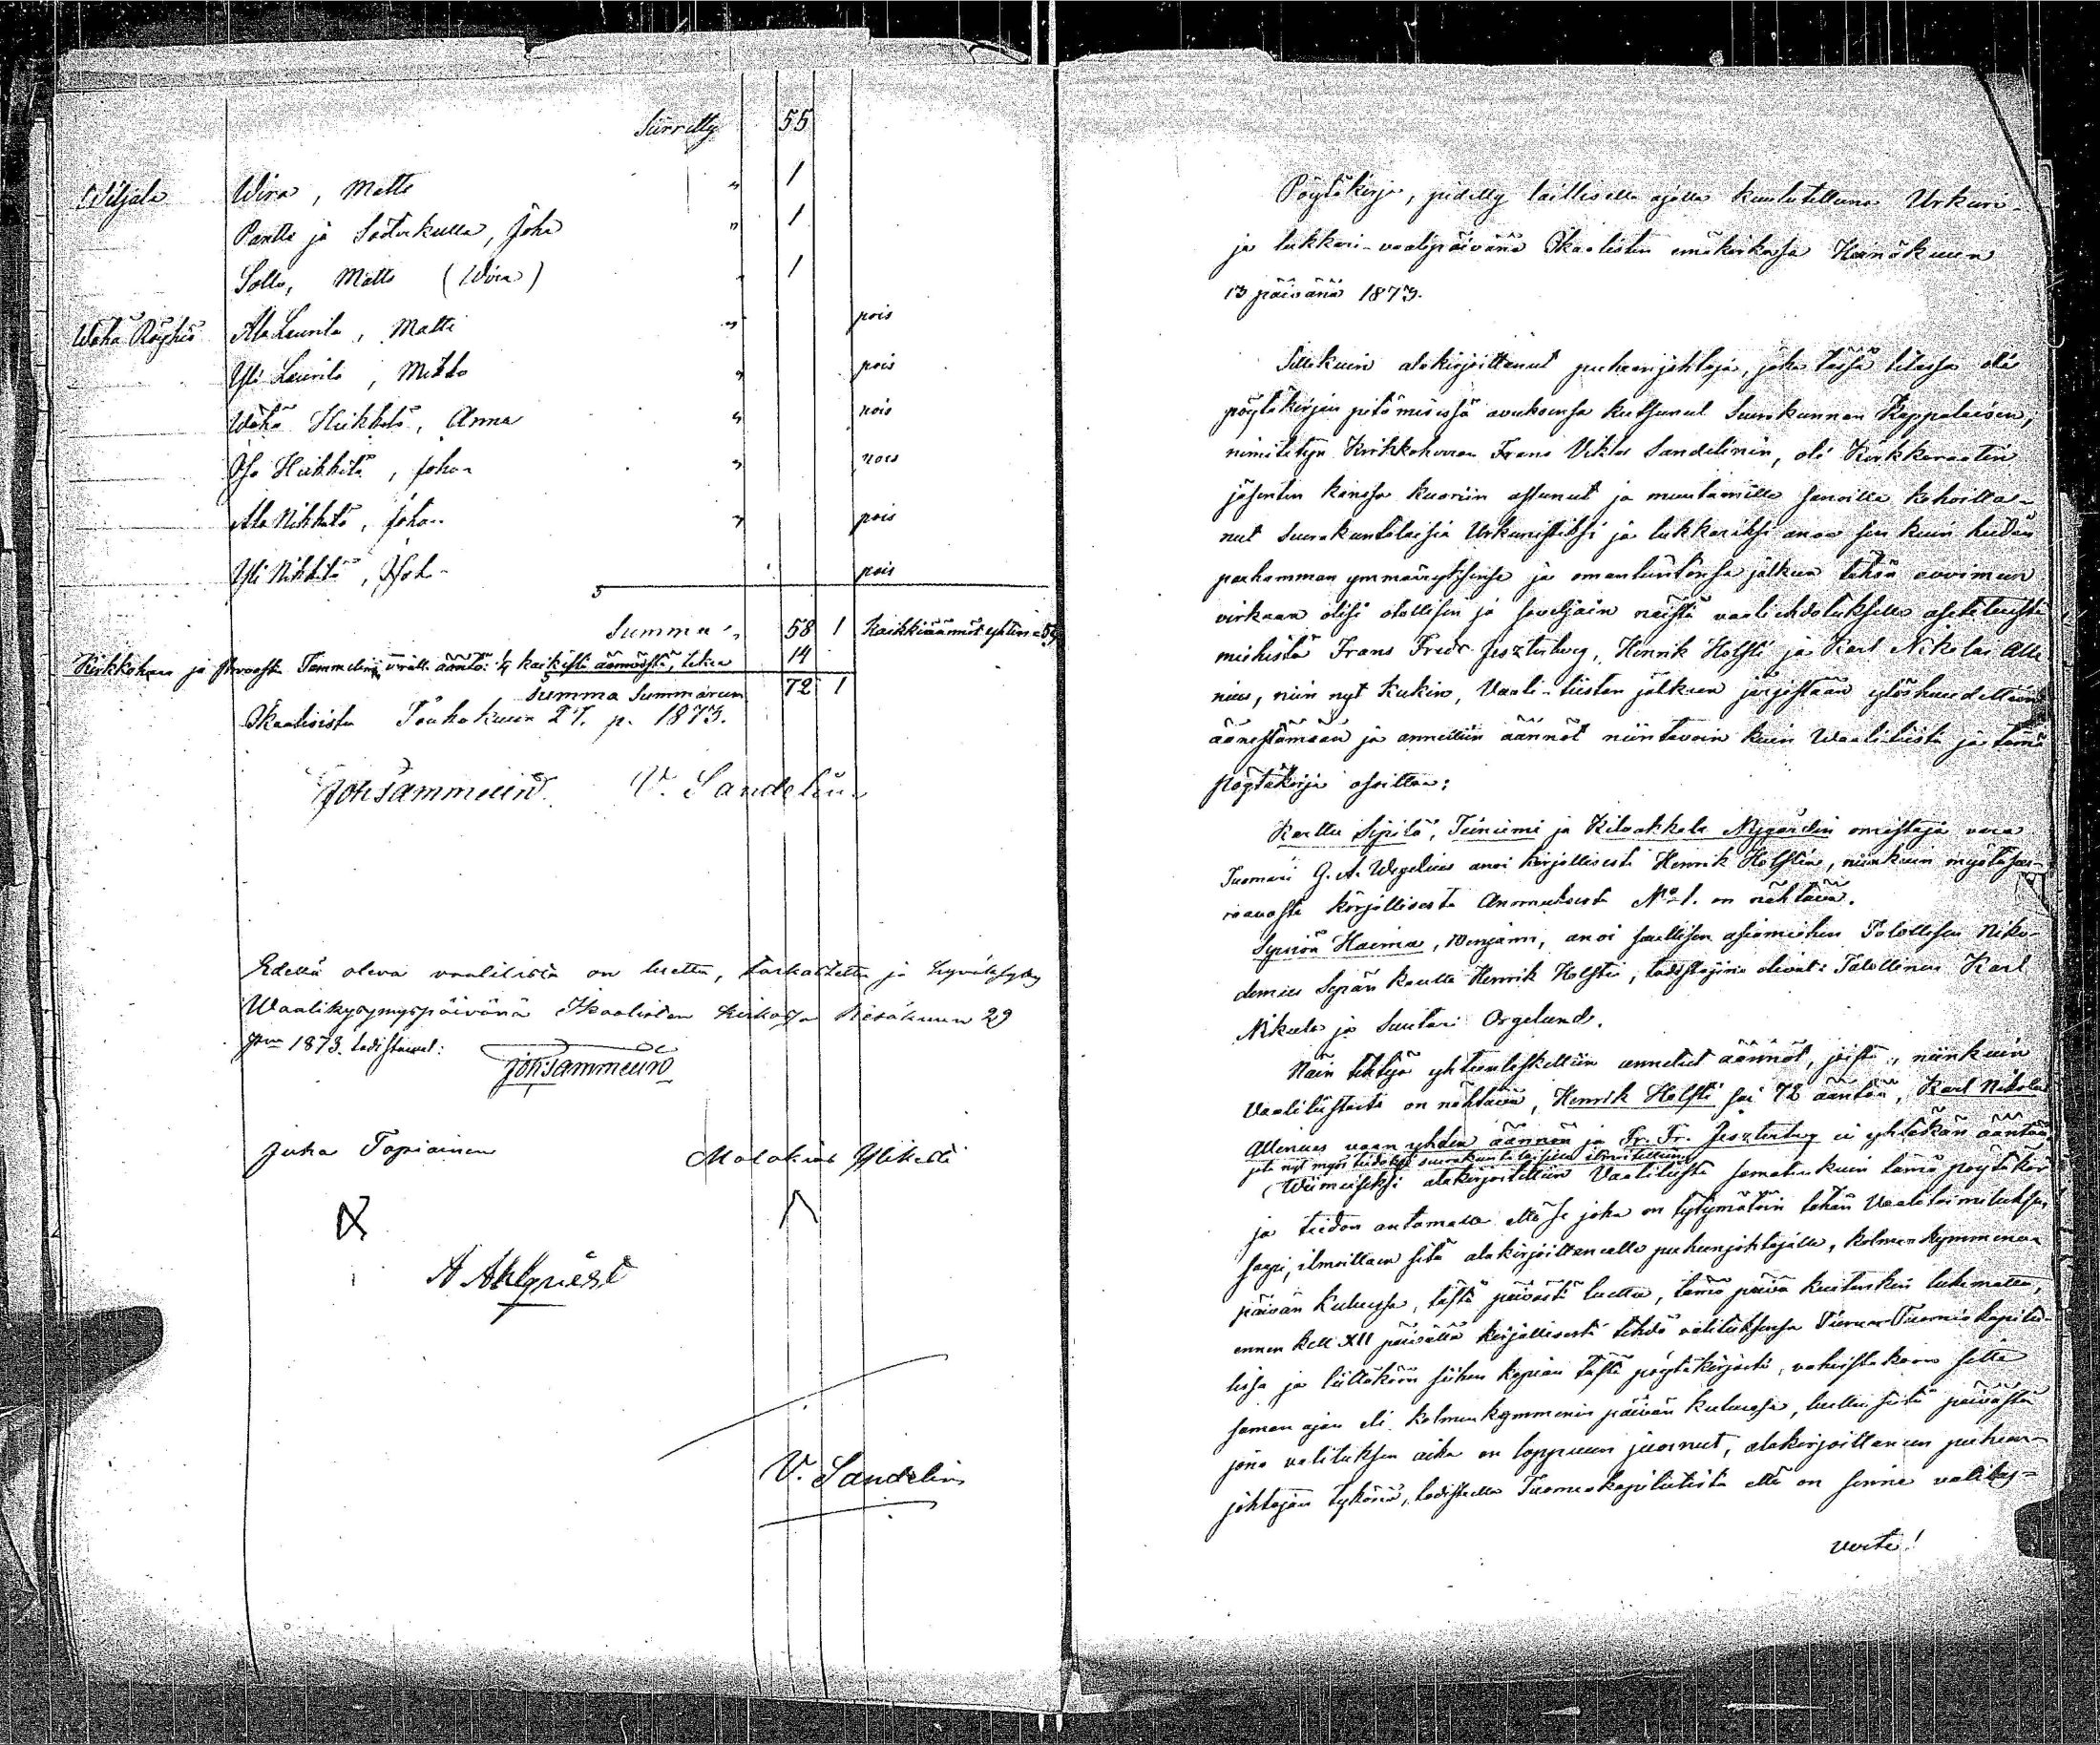 Siirretty 55
Wiljala Wira, Matts " 1
Pantti ja Sorukulla, Joha " 1
Solta, Matts (Wira) " 1
Wähä Röyhiö Ala Laurila, Matti " pois
Yli Laurila, Mikko " pois
Wähä Heikkilä, Anna " pois
Iso Heikkilä, Johan " pois
Ala Nikkilä, Johan " pois
Yli Nikkilä, Joh. " pois
Summa " 58 1 Kaikki äännöt yhteen = 59
Kirkkoherra ja Provasti Tammelin virall. ääntö: 1/4 kaikista äännöistä, tekee 14
Summa Summarum 72 1
Ikaalisista Toukokuun 27. p. 1873.
Joh. Tammelin V. Sandelin
Edellä oleva vaalilista on luettu, tarkastettu ja hyväksytty
Waalikysymyspäivänä Ikaalisten kirkossa Kesäkuun 29
p:nä 1873. todistavat:
Joh. Tammelin
Juha Topiainen Malakias Ylikesti
A Ahlqvist
V. Sandelin
Pöytäkirja, pidetty laillisella ajalla kuulutettuna Urkuri-
ja lukkari-vaalipäivänä Ikaalisten emäkirkossa Heinäkuun
13 päivänä 1873.
Sittekuin alakirjoittanut puheenjohtaja, joka tässä tilassa oli
pöytäkirjan pitämisessä avuksensa kutsunut Seurakunnan Kappalaisen,
nimitetyn Kirkkoherran Frans Viktor Sandelinin, oli Kirkkoraatin
jäsenten kanssa kuoriin astunut ja muutamilla sanoilla kehoitta-
nut Seurakuntalaisia Urkuriksi ja lukkariksi anoa sen kuin heidän
parhamman ymmärryksensä ja omantuntonsa jälkeen tähän avoimeen
virkaan olisi otollisin ja soveljain näistä vaaliehdotukselle asetetuista
miehistä Frans Fredr. Jeszterberg, Henrik Holsti ja Karl Nikolai Alle
nius, niin nyt kukin, Vaali-listan jälkeen järjestään ylöshuudettiin
äänestämään ja annettiin äännöt niintavoin kuin Waalilista ja tämä
pöytäkirja osoittaa:
Karttu Sipilä, Teiniemi ja Kilvakkala Nygårdin omistaja vara
Tuomari G. A. Wegelius anoi kirjallisesti Henrik Holstia, niinkuin myötäseu-
raavasta kirjallisesta Anomuksesta N:o 1. on nähtävä.
Sipilä Haima, Benjam, anoi laillisen asiamiehen Talollisen Niko-
demius Sepän kautta Henrik Holstia, todistajina olivat: Talollinen Karl
Nikula ja Suutari Orgelund.
Näin tehtyä yhteenlaskettiin annetut äännöt, joista, niinkuin
Vaalilistasta on nähtävä, Henrik Holsti sai 72 ääntöä, Karl Nikolai
Allenius vaan yhden äännön ja Fr. Fr. Jeszterberg ei yhtäkän ääntöä
joka nyt myös tiedoksi seurakuntalaisille ilmoitettiin
Wiimeiseksi alakirjoitettiin Vaalilista samaten kuin tämä pöytäkir
ja tiedon antamalla että se joka on tytymätöin tähän Vaalitoimitukseen
sapi, ilmoittaen sitä alakirjoittaneelle puheenjohtajalle, kolmenkymmenen
päivän kuluessa, tästä päivästä luettu, tämä päivä kuitenkin lukematta,
ennen kell XII päivällä kirjallisesti tehdä valituksensa Turun Tuomio kapitu-
lissa ja liittäköön siihen kopian tästä pöytäkirjasta, vahvistakoon sitte
saman ajan eli kolmenkymmenen päivän kuluessa, luettu siitä päivästä
jona valituksen aika on loppuun juosnut, alakirjoittaneen puheen-
johtajan tykönä, todistuella Tuomiokapitulista että on sinne valitus-
verte!